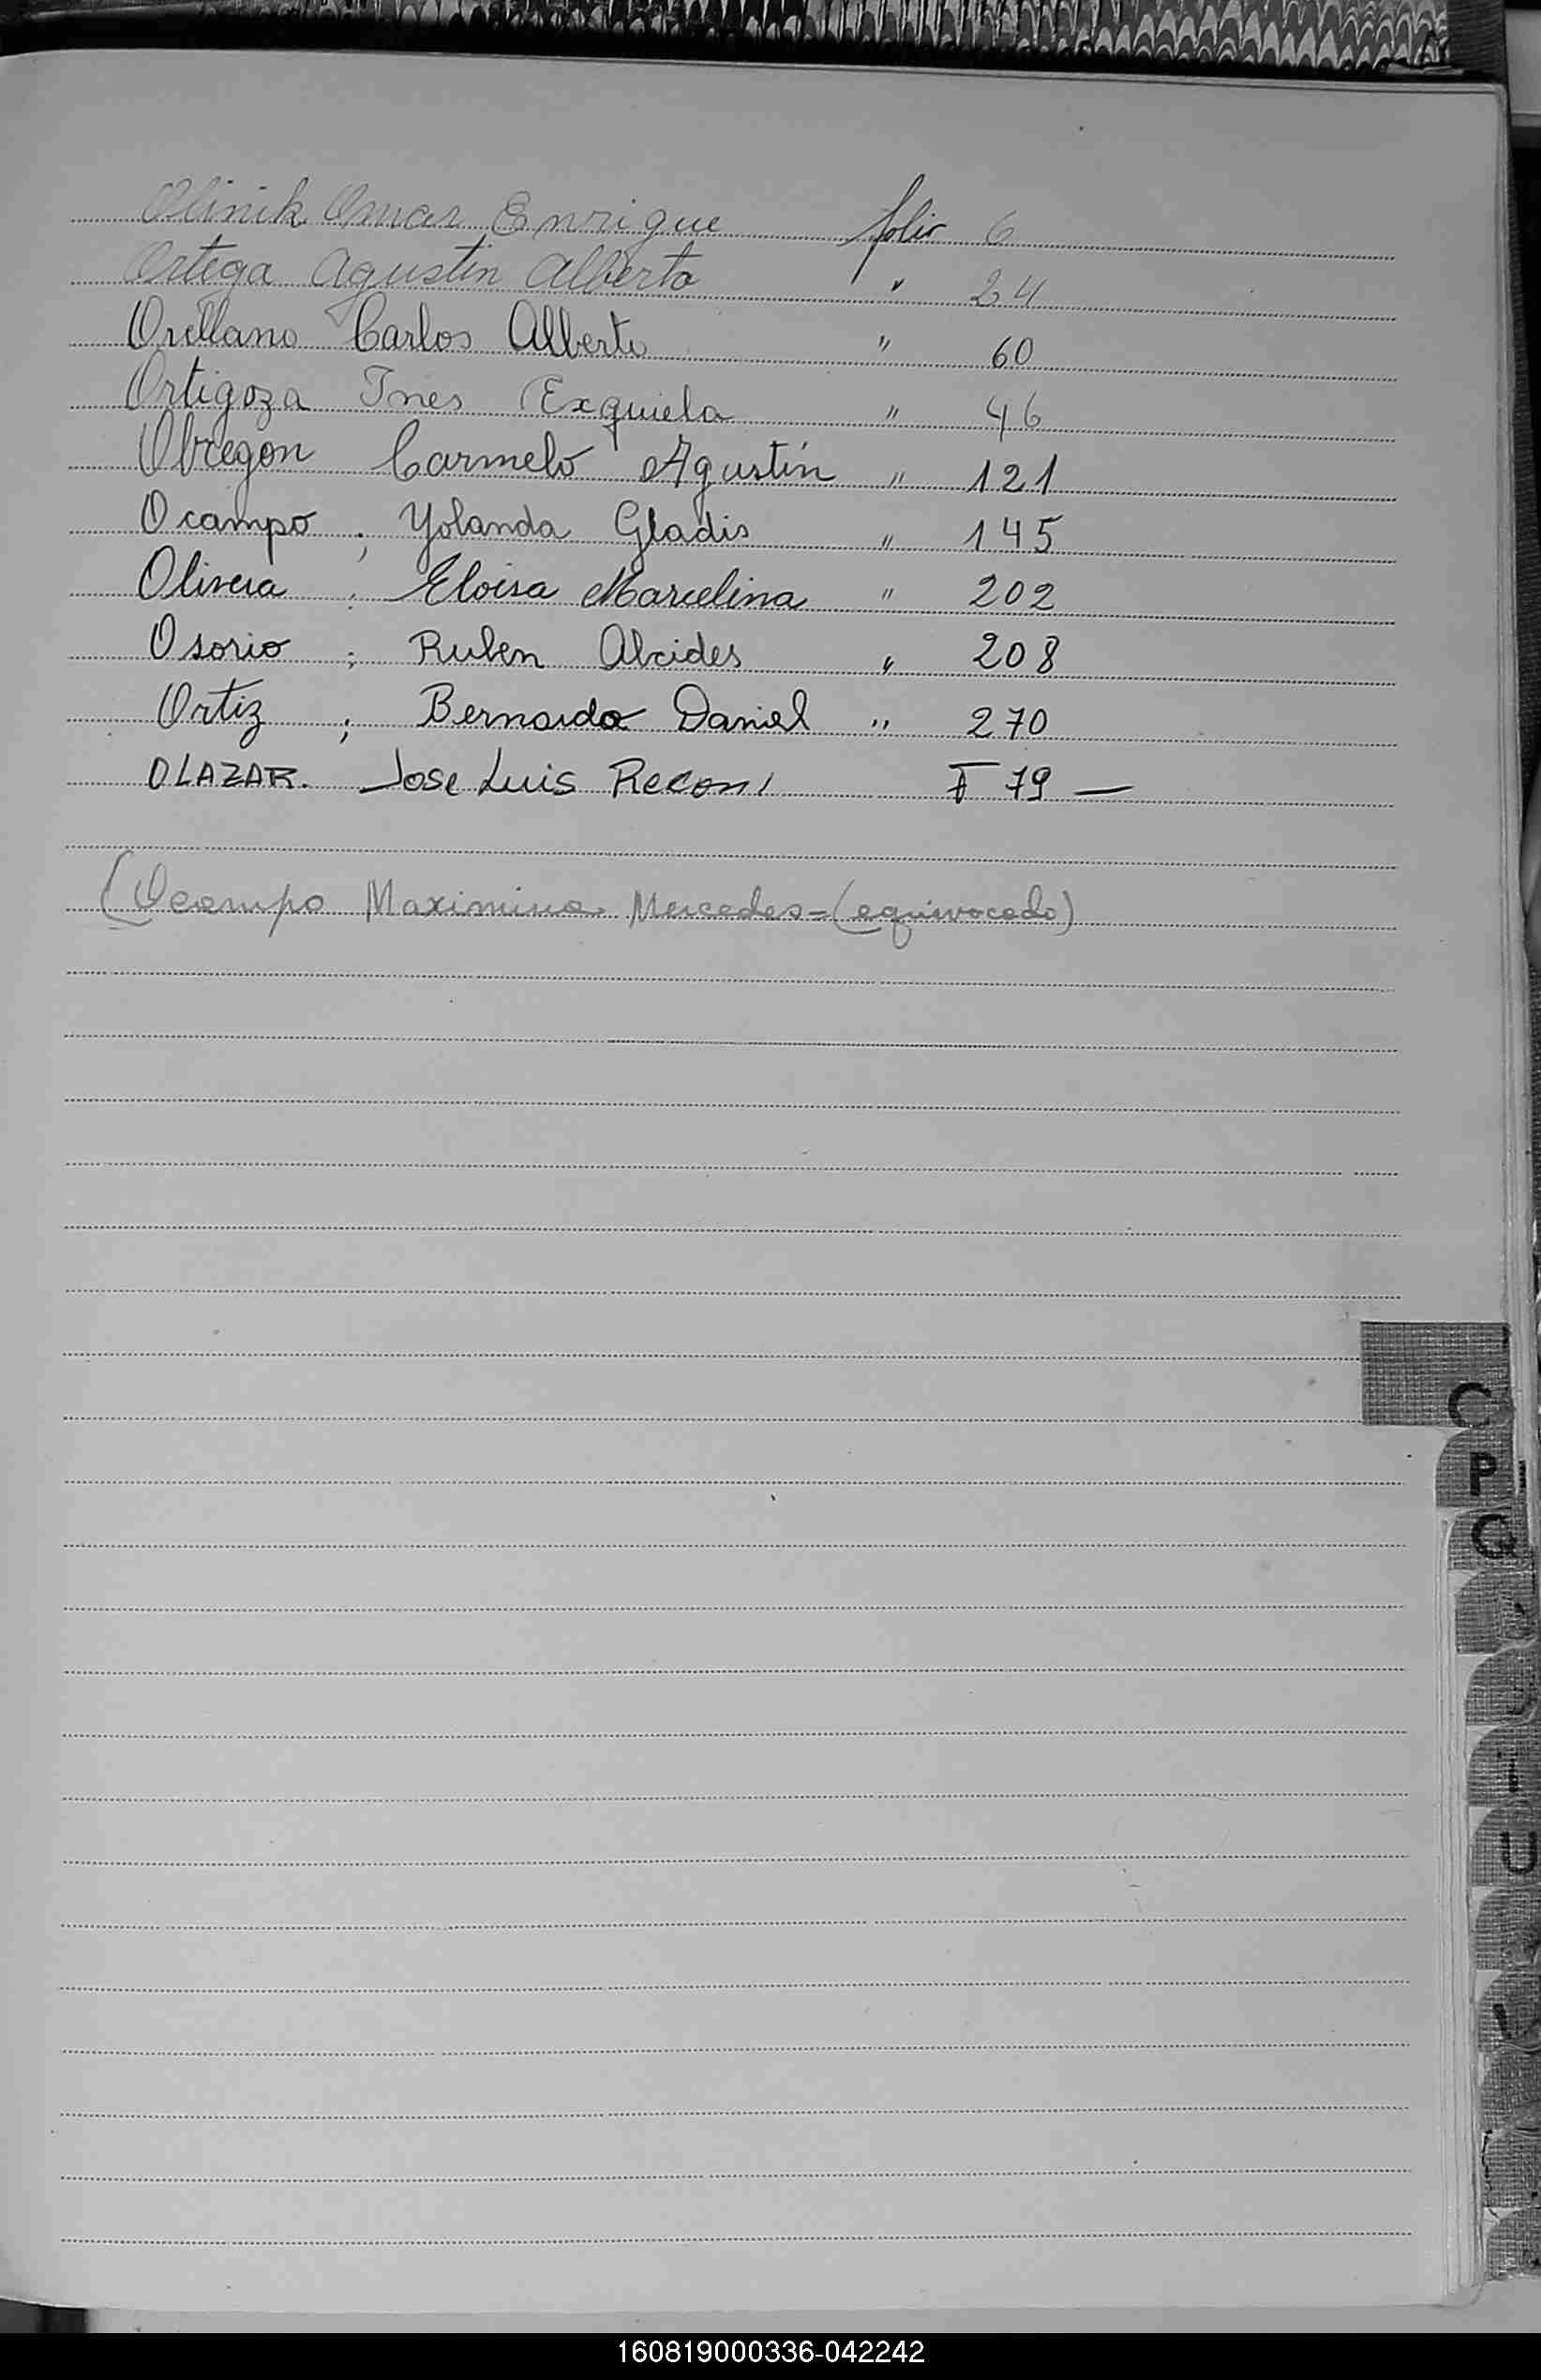 Olinik Omar Enrique folio 6
Ortega Agustin Alberto " 24
Orellano Carlos Alberto " 60
Ortigoza Ines Exquiela " 46
Obregon Carmelo Agustín " 121
Ocampo ; Yolanda Gladis " 145
Olivera ; Eloisa Marcelina " 202
Osorio ; Ruben Alcides " 208
Ortiz ; Bernardo Daniel " 270
OLAZAR. Jose Luis F 79 —
(Ocampo Maximina Mercedes = (equivocado)
C
P
Q
U
160819000336-042242